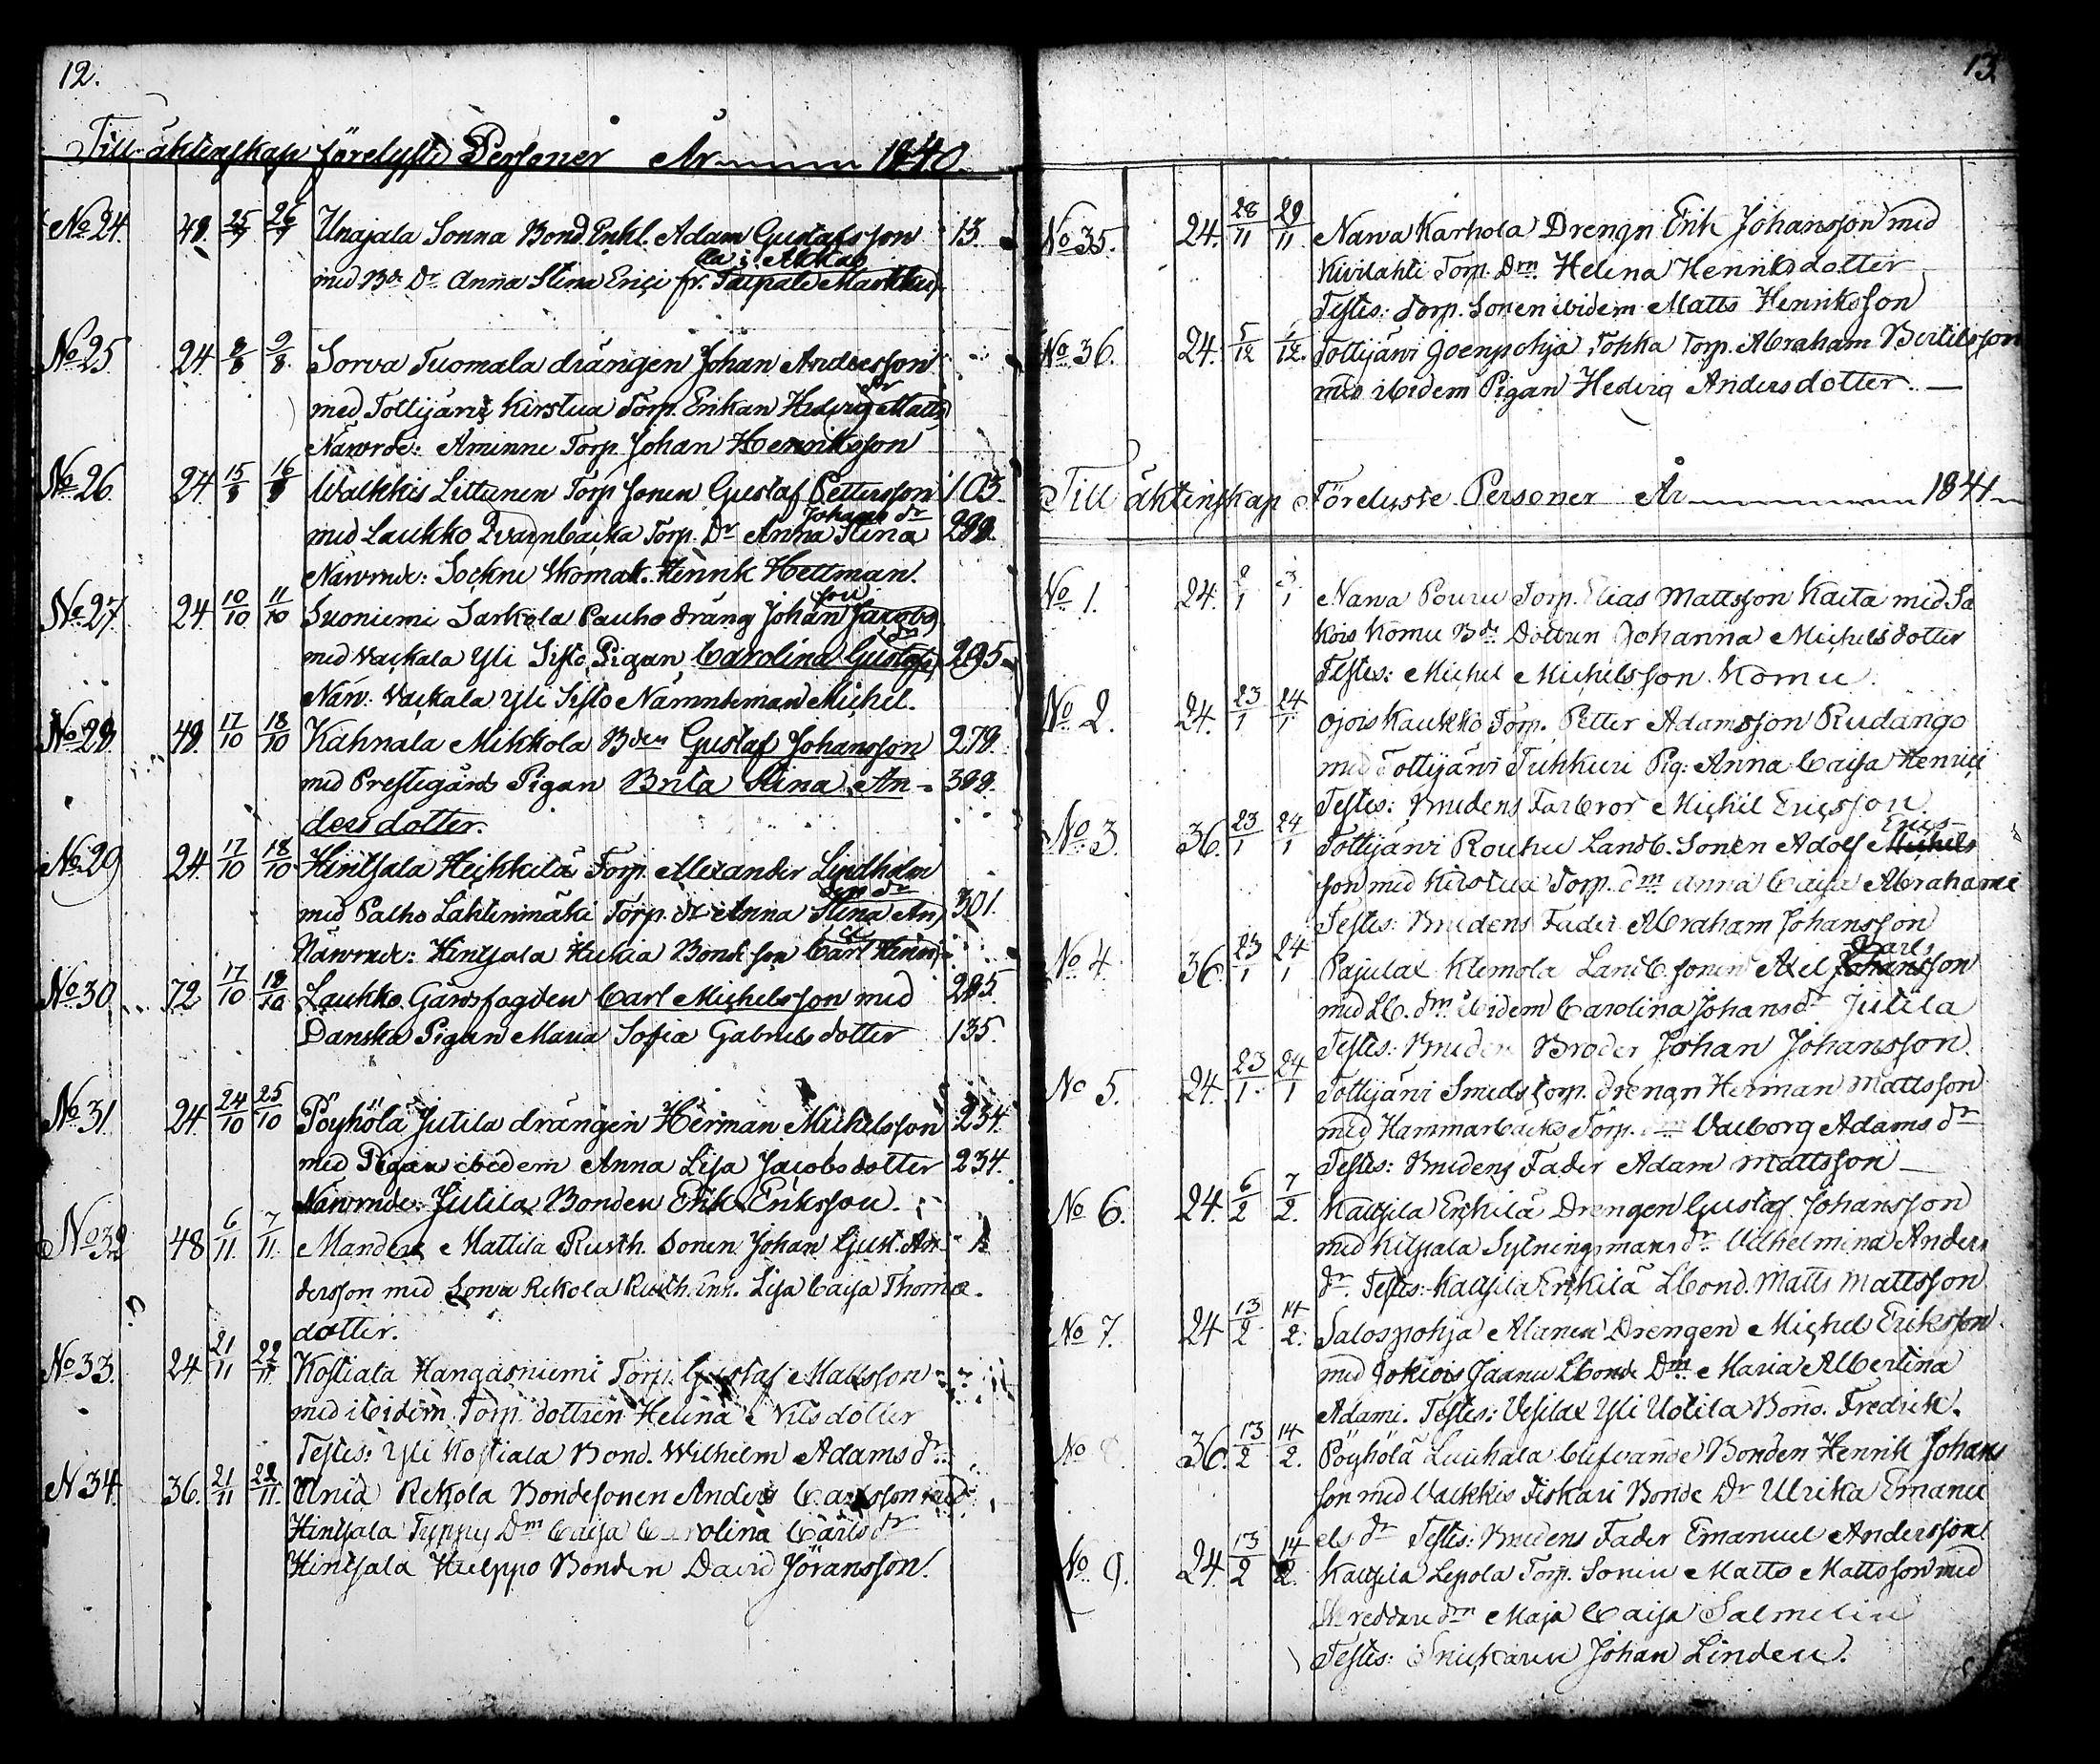 12.
Till ähktenskap förelyste Personer År 1840.
No 24. 48. 25/7 26/7 Unajala Sonna Bond. Enkl. Adam Gustafsson 13.
med Bd. Dr. Anna Stina Erici fr. Taipale Markku
No 25 24 8/8 9/8 Sorva Tuomala drängen Johan Andersson
med Tottijärvi Kirstua Torp. Enkan Hedvig Matts dr
Närvde: Aminne Torp. Johan Henriksson
No 26. 24 15/8 16/8 Walkkis Littunen Torp. sonen Gustaf Pettersson 103.
Johans dr
med Laukko Qvarnbacka Torp. Dr Anna Stina 288.
Närvrnde: Sockne Skomak. Henrik Hellman.
No 27 24 10/10 11/10 Suoniemi Sarkola Pauho dräng Johan Jacobsson
med Vackala Yli Sisto Pigan Carolina Gustafs dr 295
Närv: Vackala Yli Sisto Nämndeman Michel.
No 28. 48. 17/10 18/10 Kahnala Mikkola Bden Gustaf Johansson 278.
med Prestegårds Pigan Brita Stina An- 388.
dersdotter.
No 29 24 17/10 18/10 Hinsala Heikkilä Torp. Alexander Lindholm
med Palho Lahtinmäki Torp. dr Anna Stina An ders dr 301.
Närvrnde: Hinsala Heikia Bonde son Carl Henri ci
No 30. 72 17/10 18/10 Laukko Gårdsfogden Carl Michelsson med 285.
Danska Pigan Maria Sofia Gabrielsdotter 135.
No 31. 24 24/10 25/10 Pöyhölä Jutila drängen Herman Michelsson 234.
med Pigan ibidem Anna Lisa Jacobsdotter 234.
Närvrnde: Jutila Bonden Erik Eriksson.
No 32 48 6/11. 7/11. Manders Mattila Rusth. Sonen Johan Gust. An-
dersson med Sorva Rekola Rusth. Enk. Lisa Caisa Thomæ
dotter.
No 33. 24 21/11 22/11. Kostiala Hangasniemi Torp. Gustaf Mattsson
med ibidem Torp. dottren Helena Nilsdotter
Testes: Yli Kostiala Bond. Wilhelm Adams dr.
N 34. 36. 21/11 22/11. Rekola Bondesonen Anders Carlsson med
Hinsala Typpy Dm Caisa Carolina Carlsdr
Hinsala Huilppo Bonden David Jöransson.
13.
No 35. 24. 28/11 29/11 Narva Karhola Drengn Erik Johansson med
Kivilahti Torp. Dm. Helena Henriksdotter
Testes: Torp. Sonen ibidem Matts Henriksson
No 36. 24. 5/12 6/12. Tottijärvi Joenpohja Tohka Torp. Abraham Bertilsson
med ibidem Pigan Hedvig Andersdotter.
Till ähktenskap Förelyste Personer År 1841
No 1. 24. 2/1 3/1 Narva Pouru Torp. Elias Mattsson Kaita med Sa
kois Komu Bds Dottren Johanna Michelsdotter
Testes: Michel Michelsson Komu.
No 2. 24. 23/1 24/1 Ojois Kaukko Torp. Petter Adamsson Rudango
med Tottijärvi Tuhkuri Pig: Anna Caisa Henrici
Testes: Brudens Farbror Michel Ericsson
No 3. 36. 23/1 24/1 Tottijärvi Rouhu Landb. Sonen Adolf Michels Erics-
son med Kirstua Torp. dm Anna Caisa Abrahami
Testes: Brudens Fader Abraham Johansson
No 4. 36 23/1 24/1 Pajulax Klemola Landb. sonen Axel Johansson Carls
med Lb. dm. ibidem Carolina Johansdr Jutila
Testes: Brudens Broder Johan Johansson.
No 5. 24. 23/1. 24/1 Tottijärvi Smedstorp. Drengn Herman Mattsson
med Hammarbacka Torp. Valborg Adams dr
Testes: Brudens Fader Adam Mattsson
No 6. 24. 6/2 7/2. Katsila Erkilä Drengen Gustaf Johansson
med Kitsala Sytningsmans dr Vilhelmina Anders
dr. Testes: Katsila Erkilä Lbond. Matts Mattsson
No 7. 24 13/2 14/2. Salospohja Alanen Drengen Michel Eriksson
med Jokiois Jaanu Lbonde Dm. Maria Albertina
Adami. Testes: Vesilax Yli Uotila Bond. Fredrik.
No 8. 36. 13/2 14/2. Pöyhölä Luuhala blifvande Bonden Henrik Johans
son med Valkkis Fiskari Bonde Dr Ulrika Emanu
els dr Testes: Brudens Fader Emanuel Andersson
No 9. 24. 13/2 14/2. Katsila Lepola Torp. Sonen Matts Mattsson med
Skreddare dm Maja Caisa Salmelin
Testes: Snickaren Johan Linden.